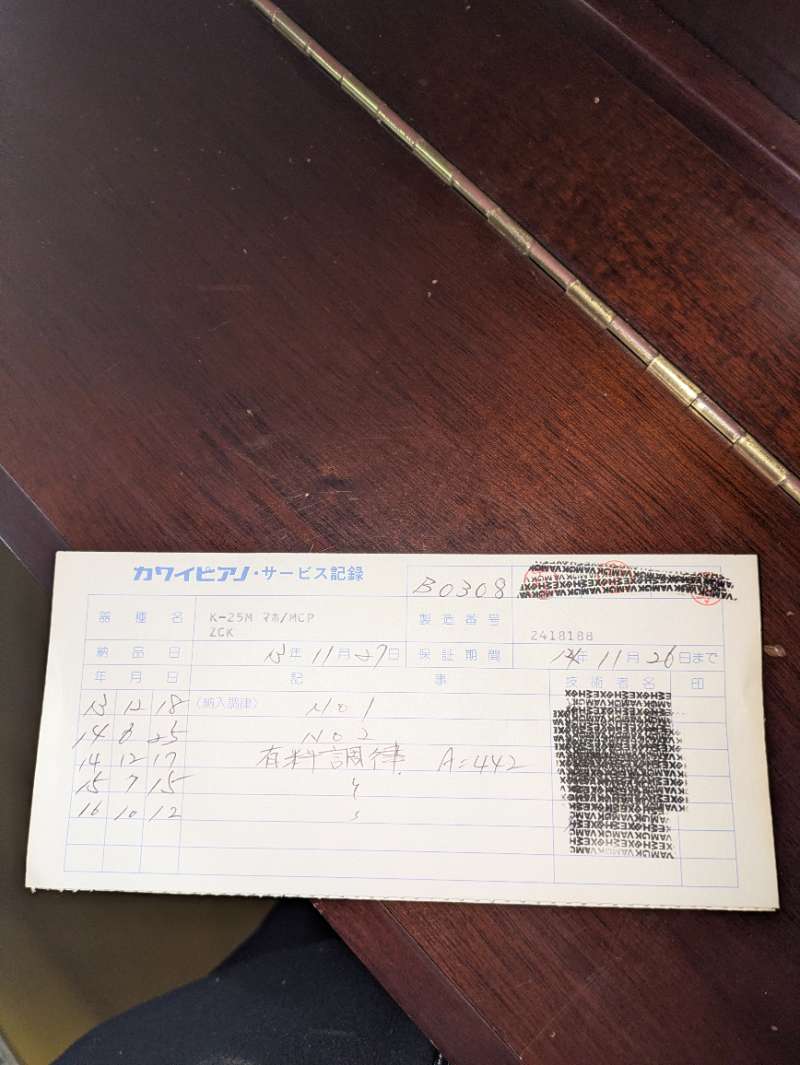 カワイピアノ・サービス記録 B0308
器種名 K-25M マホ/MCP 製造番号
ZCK 2418188
納品日 13年11月27日 保証期間 14年11月26日まで
年月日 記事 技術者名 印
13 12 18 (納入調律) No 1
14 8 25 No 2
14 12 17 有料調律 A=442
15 7 15 〃
16 10 12 〃